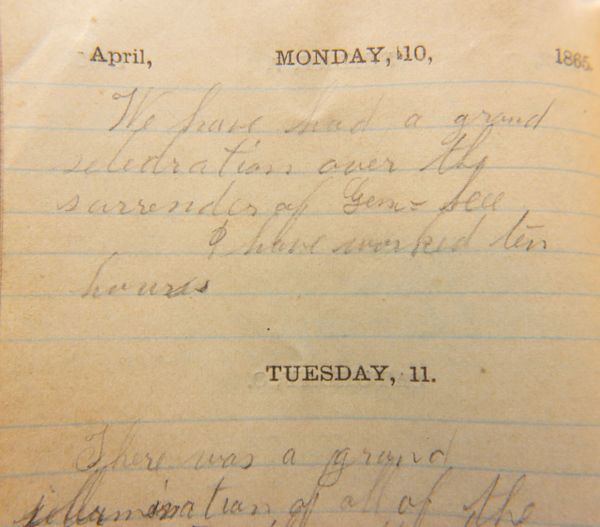 April, MONDAY, 10, 1865.
We have had a grand
celebration over the
surrender of Gen= Lee
I have worked ten
hours
TUESDAY, 11.
There was a grand
illumination of all of the